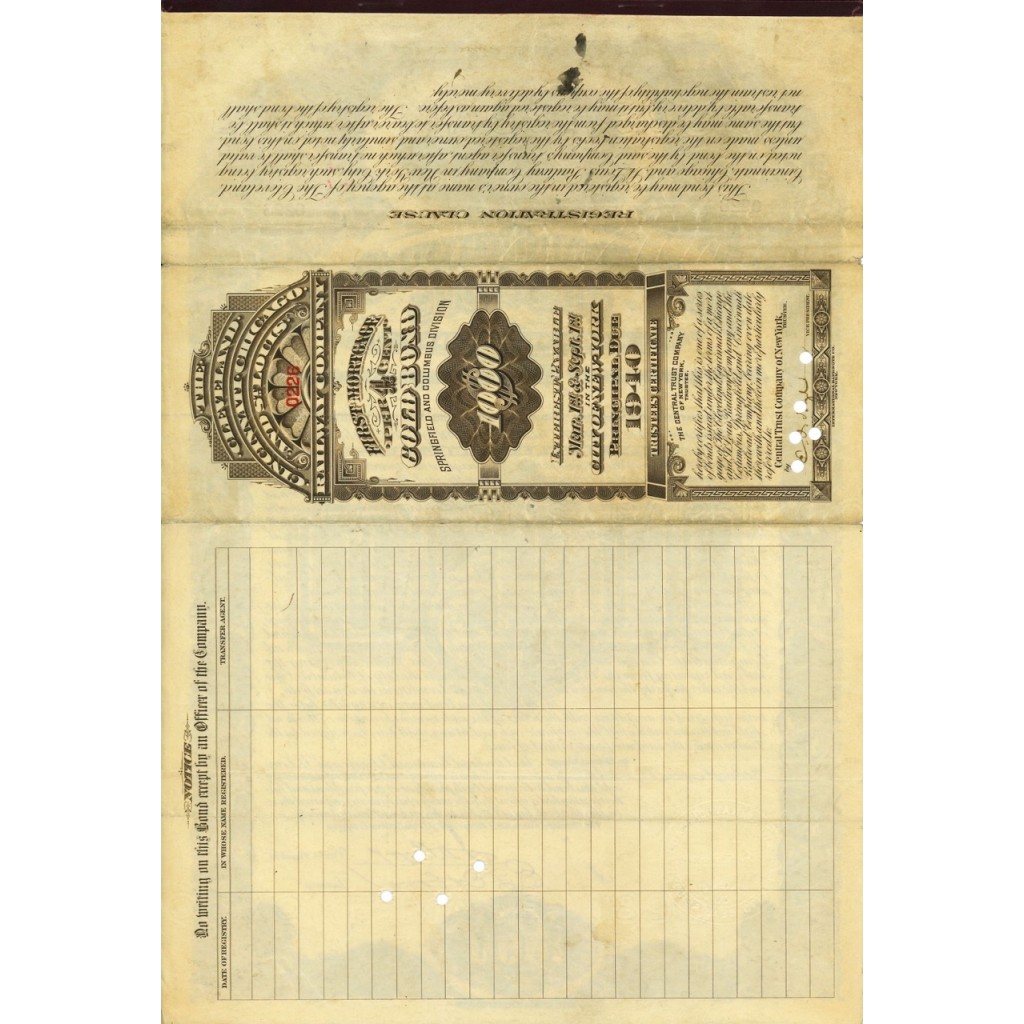 REGISTRATION CLAUSE
This bond may be registered in the owner's name at the agency of The Cleveland
Cincinnati, Chicago and St. Louis Railway Company in New York City, such registry being
noted on the bond by the said Company's transfer agent, after which no transfer shall be valid
unless made on the registration books by the registered owner and similarly noted on this bond
but the same may be discharged from the registry by transfer to bearer, after which it shall be
transferable by delivery, but it may be registered again as before. The registry of the bond shall
not restrain the negotiability of the coupons by delivery merely.
THE
CLEVELAND
CINCINNATI, CHICAGO
AND ST. LOUIS
0226
RAILWAY COMPANY
FIRST MORTGAGE
4 PER CENT
GOLD BOND
SPRINGFIELD AND COLUMBUS DIVISION
$1000
INTEREST PAYABLE
Mar. 1st & Sept. 1st
IN THE
CITY OF NEW YORK
PRINCIPAL DUE
1940
TRUSTEE'S CERTIFICATE
THE CENTRAL TRUST COMPANY
OF NEW YORK,
TRUSTEE,
hereby certifies that this is one of a series
of bonds issued under the terms of a mort-
gage of The Cleveland, Cincinnati, Chicago
and St. Louis Railway Company and The
Columbus, Springfield and Cincinnati
Railroad Company, bearing even date
therewith, and therein more particularly
referred to.
Central Trust Company of New York,
TRUSTEE.
by
VICE PRESIDENT.
NOTICE
No writing on this Bond except by an Officer of the Company.
DATE OF REGISTRY. IN WHOSE NAME REGISTERED. TRANSFER AGENT.